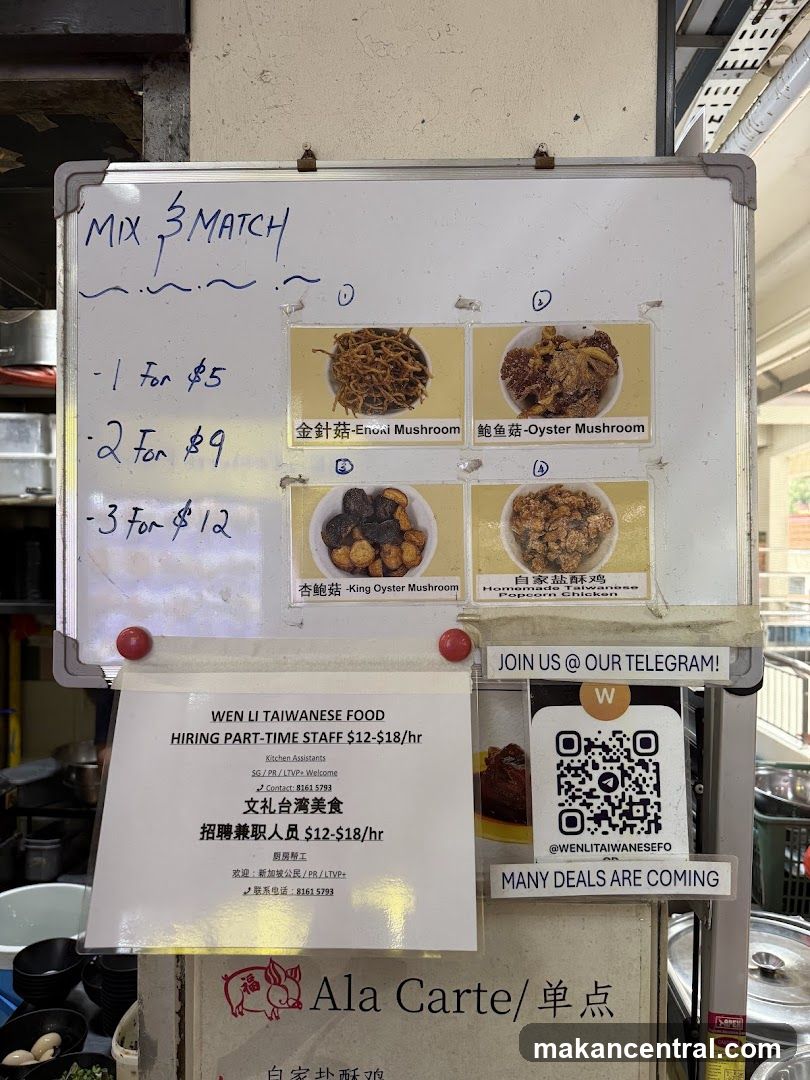 MIX & MATCH
- 1 For $5
- 2 For $9
- 3 For $12
①
②
金針菇-Enoki Mushroom
鲍鱼菇-Oyster Mushroom
③
④
杏鲍菇 -King Oyster Mushroom
自家盐酥鸡
Homemade Taiwanese
Popcorn Chicken
JOIN US @ OUR TELEGRAM!
WEN LI TAIWANESE FOOD
HIRING PART-TIME STAFF $12-$18/hr
Kitchen Assistants
SG / PR / LTVP+ Welcome
Contact: 8161 5793
文礼台湾美食
招聘兼职人员 $12-$18/hr
厨房帮工
欢迎：新加坡公民 / PR / LTVP+
联系电话：8161 5793
W
@WENLITAIWANESEFO
OD
MANY DEALS ARE COMING
福
Ala Carte/单点
自家盐酥鸡
makancentral.com